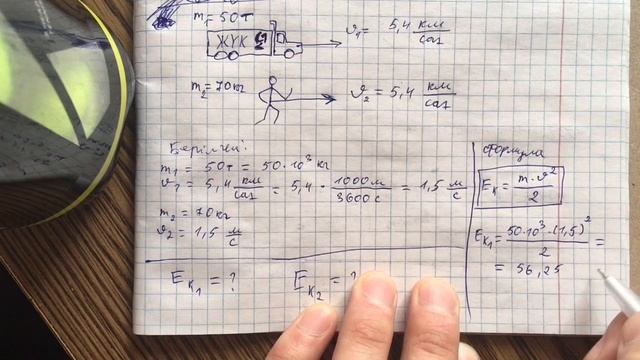 m₁ = 50т
ЖҮК
ϑ₁ = 5,4 км/сағ
m₂ = 70кг
ϑ₂ = 5,4 км/сағ
Берілгені:
m₁ = 50т = 50·10³ кг
ϑ₁ = 5,4 км/сағ = 5,4 · 1000м/3600с = 1,5 м/с
m₂ = 70кг
ϑ₂ = 1,5 м/с
E_K₁ = ?
E_K₂ = ?
Формула
E_K = m·ϑ²/2
E_K₁ = 50·10³·(1,5)²/2 =
= 56,25